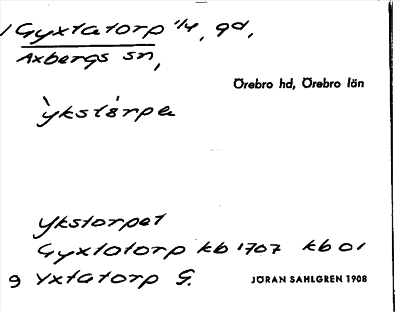 1 Gyxtatorp 1/4, gd,
Axbergs sn,
Örebro hd, Örebro län
`ykstòrpa
Ykstorpet
Gyxtotorp kb 1707 kb 01
9 Yxtatorp G.
JÖRAN SAHLGREN 1908